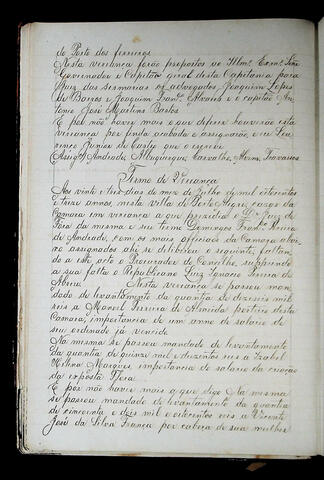 do Porto dos ferreiros
Nesta veriança forão propostos ao Illmo. Exmo. Snr.
Governador e Capitão general desta Capitania para
Juiz das sesmarias os advogados Joaquim Lopes
de Barros e Joaquim Franco. Alvares e o capitão An-
tonio José Martins Bastos
E por não haver mais o que deferir houverão esta
veriança por finda acabada e assignarão, eu Lou-
renço Junior de Castro que o escrevi
Assig. Andrade, Albuquerque, Carvalho, Travassos
Termo de Veriança
Aos vinte e tres dias do mez de Julho de mil oitocentos
e treze annos, nesta villa de Porto Alegre, cazas da
Camara em veriança a que prezidio o Dr. Juiz de
Fora da mesma e seu termo Domingos Franco. Pereira
de Andrade, com os mais officiaes da Camara abai-
xo assignados ahi se deliberou o seguinte, faltan-
do a este acto o Procurador do Concelho, supprindo
a sua falta o Republicano Luiz Ignacio Pereira de
Abreu. Nesta veriança se passou man-
dado de levantamento da quantia de dezeseis mil
reis a Manoel Ferreira de Almeida porteiro desta
Camara, importancia de um anno de salario de
seu ordenado já vencido
Na mesma se passou mandado de levantamento
da quantia de quinze mil e duzentos reis a Izabel
Helena Marques, importancia do salario da criação
da exposta Flora
E por não haver mais o que digo Na mesma
se passou mandado de levantamento da quantia
de cincoenta e dois mil e oitocentos reis a Vicente
José da Silva França por cabeça de sua mulher